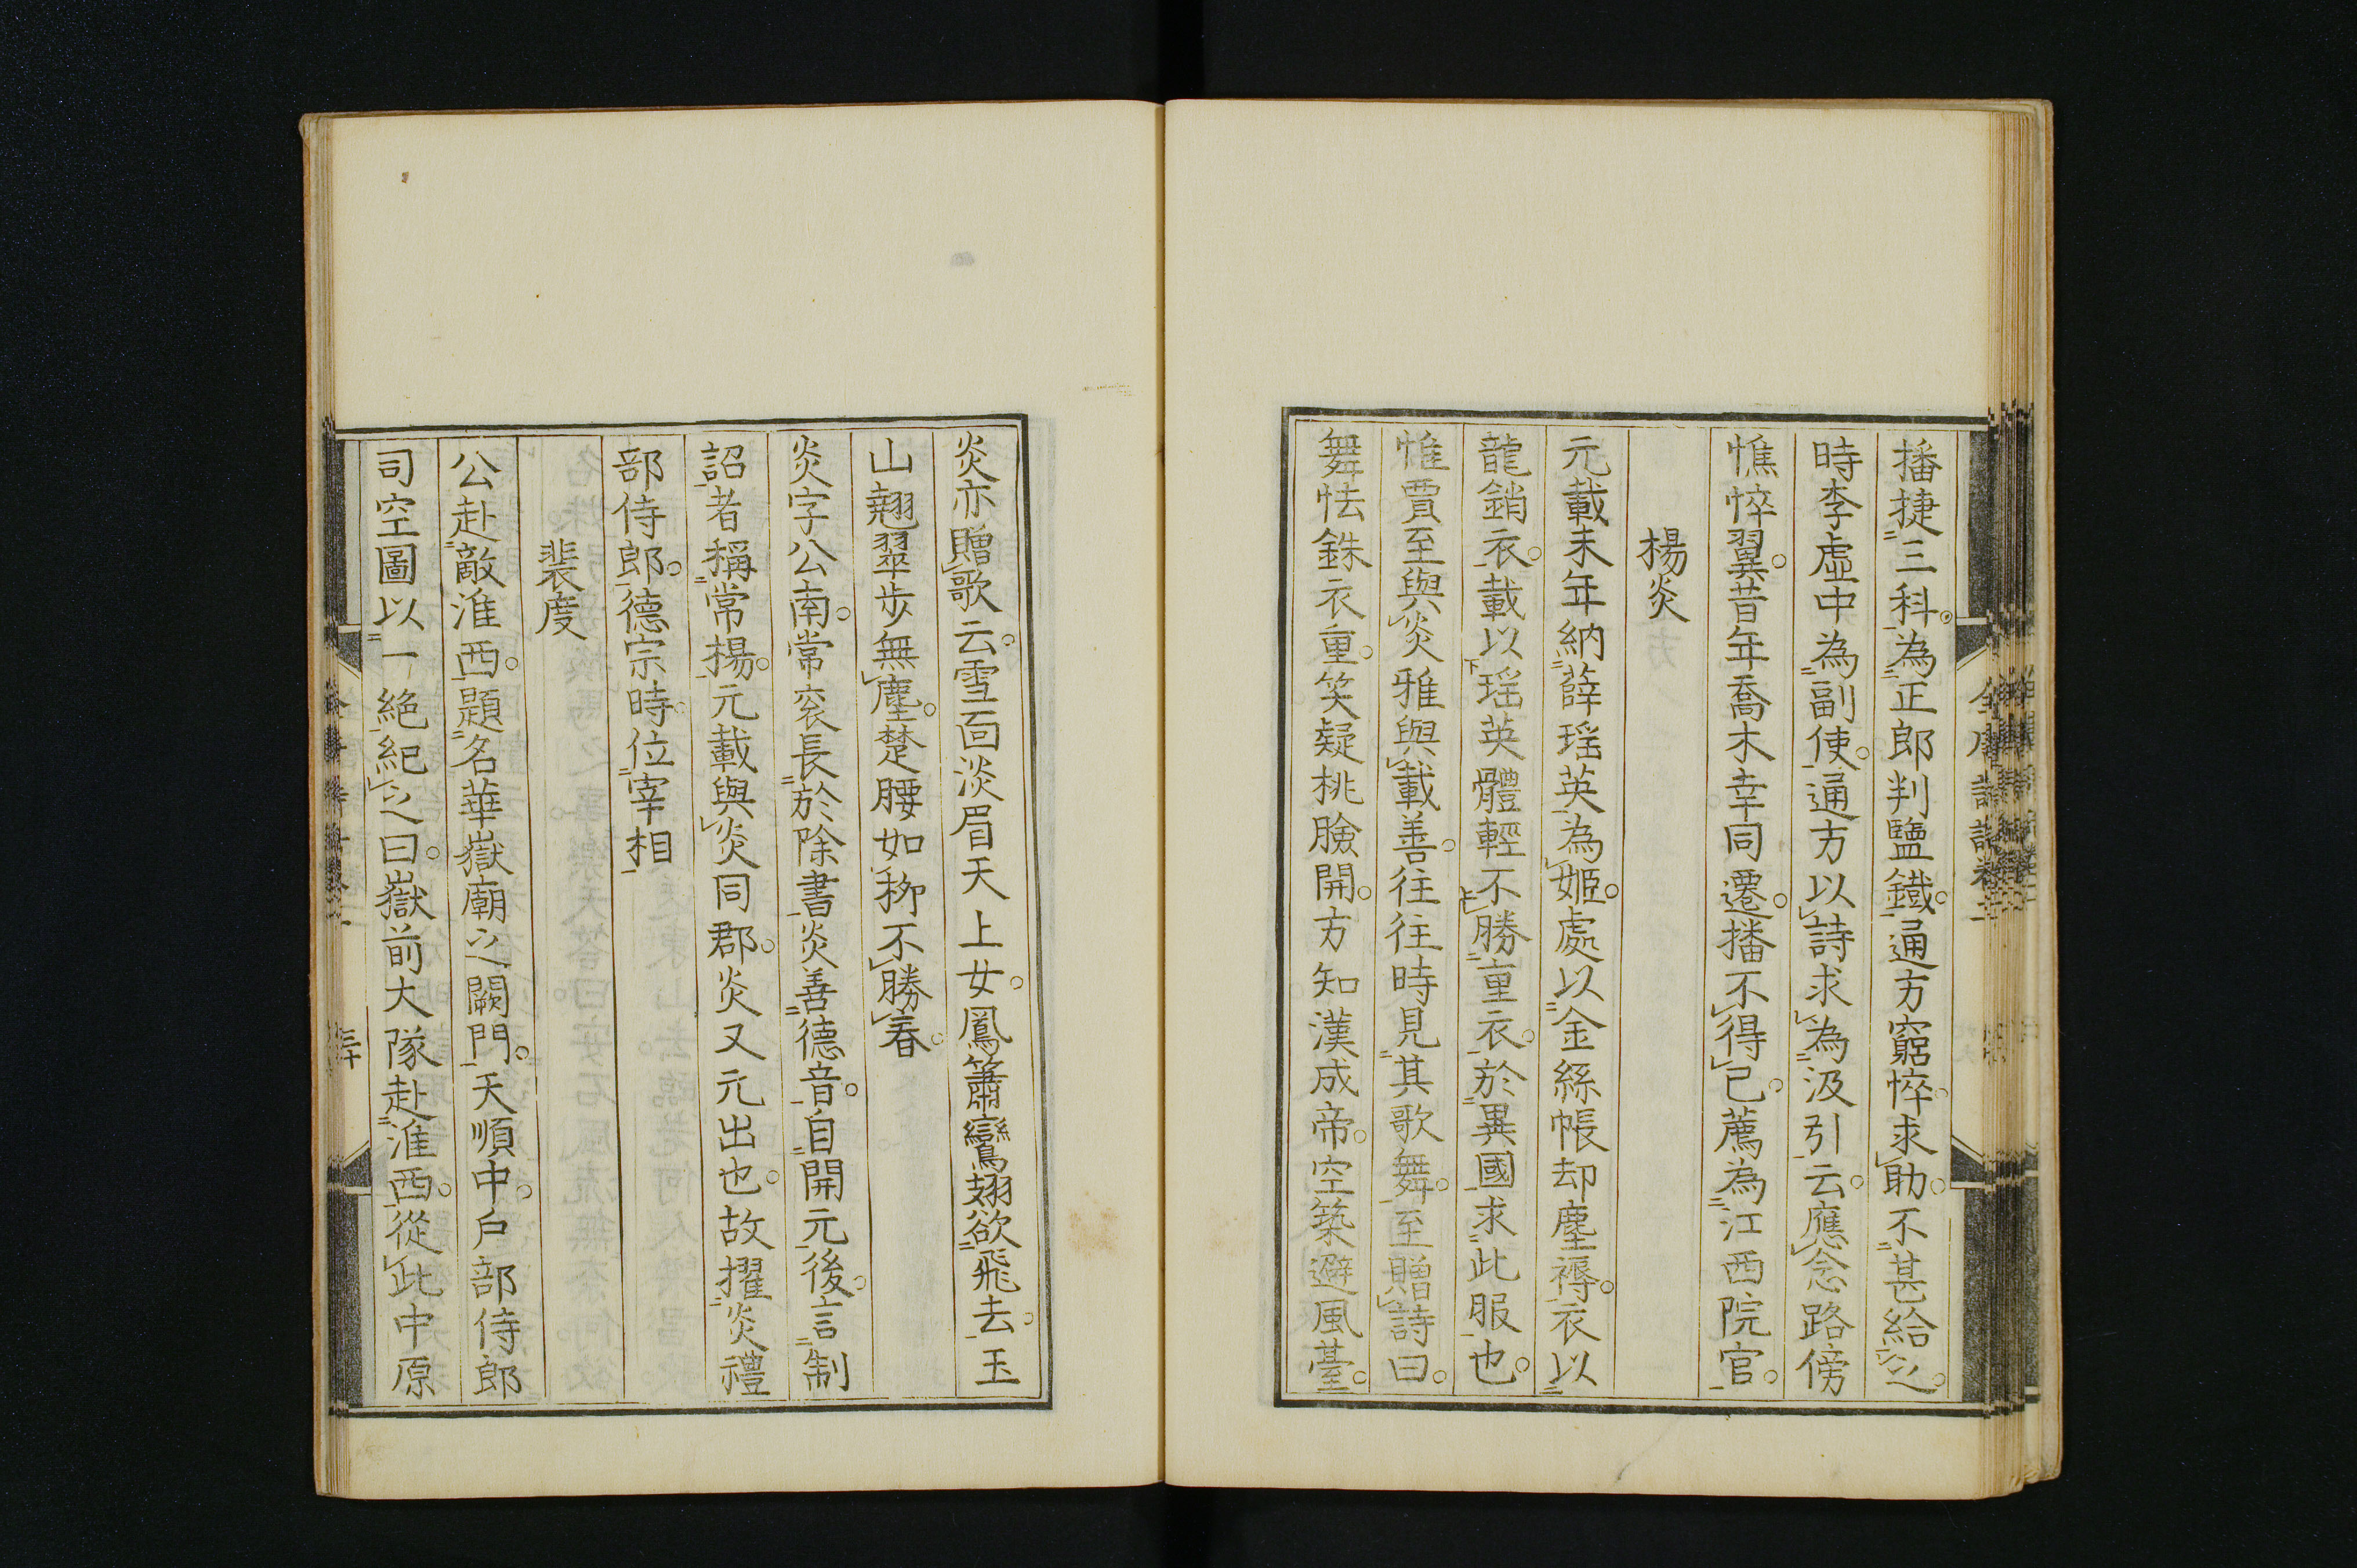 播捷三科。為正郎判鹽鐵。通方窮悴。求助。不甚給之。
時李虛中為副使。通方以詩求為汲引云。應念路傍
憔悴翼。昔年喬木幸同遷。播不得已。薦為江西院官。
楊炎
元載末年納薛瑶英為姬。處以金絲帳却塵褥。衣以
龍銷衣。載以瑶英體輕不勝重衣。於異國求此服也。
惟賈至與炎雅與載善。往往時見其歌舞。至贈詩曰。
舞怯銖衣重。笑疑桃臉開。方知漢成帝。空築避風臺。
炎亦贈歌云。雪面淡眉天上女。鳳簫鸞翅欲飛去。玉
山翹翠步無塵。楚腰如柳不勝春。
炎字公南。常衮長於除書炎善德音。自開元後。言制
詔者稱常楊。元載與炎同郡。炎又元出也。故擢炎禮
部侍郎。德宗時。位宰相
裴度
公赴敵淮西。題名華嶽廟之闕門。天順中。戶部侍郎
司空圖以一絶紀之曰。嶽前大隊赴淮西。從此中原
全唐詩話卷二
三十